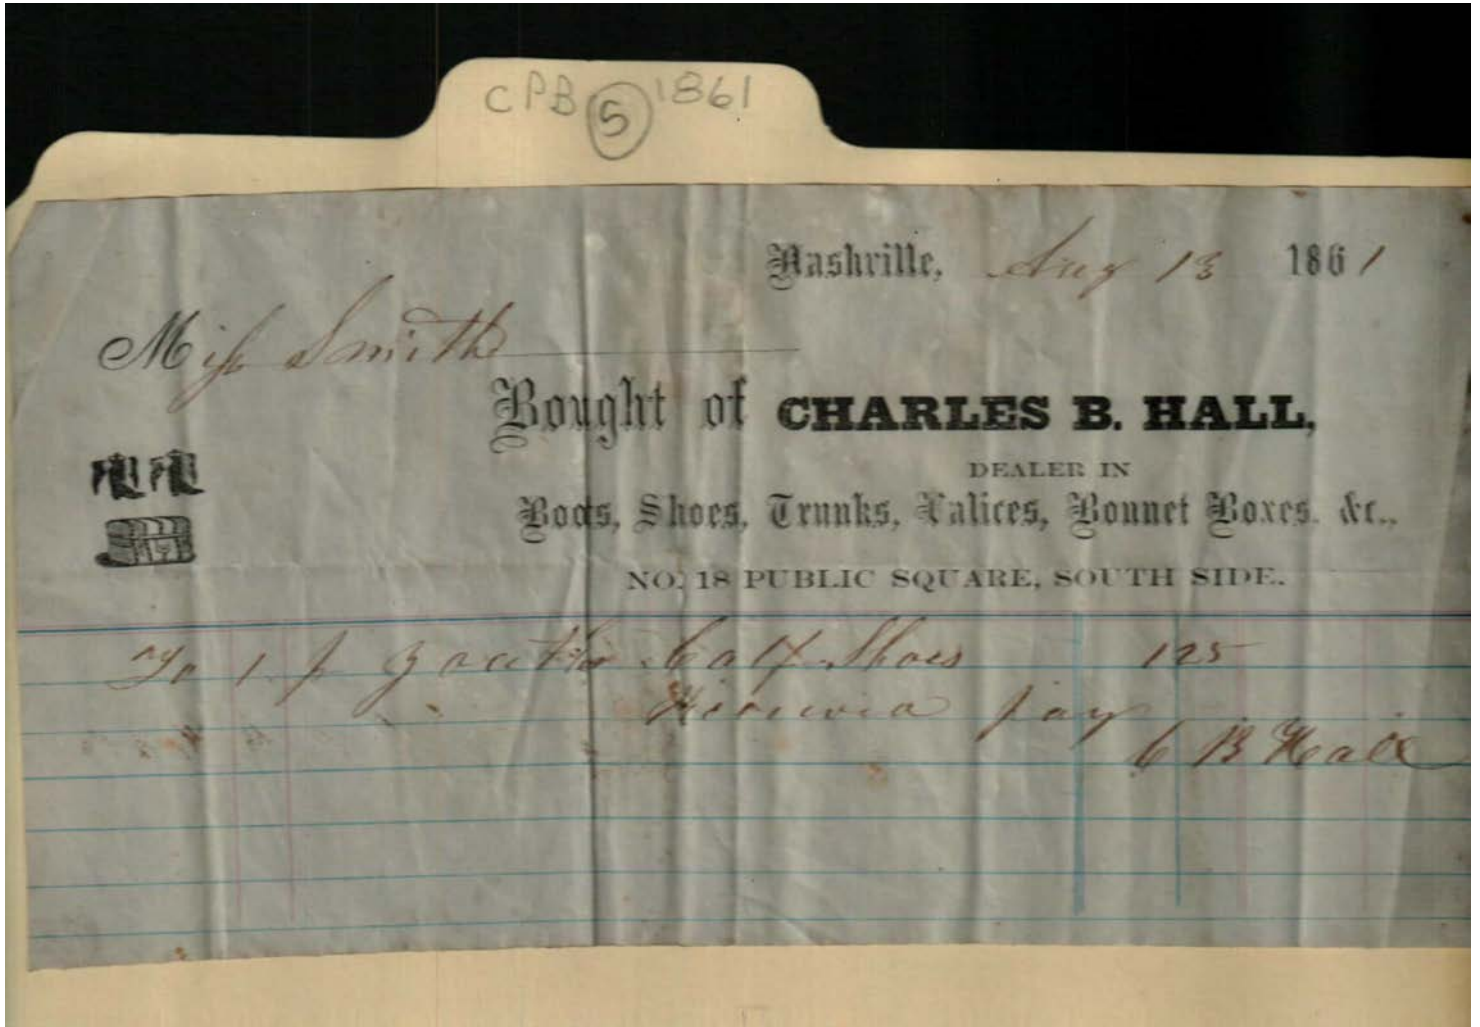 CPB 5 1861
Nashville, Aug 13 1861
Miss Smith
Bought of CHARLES B. HALL,
DEALER IN
Boots, Shoes, Trunks, Valices, Bonnet Boxes, &c.,
NO. 18 PUBLIC SQUARE, SOUTH SIDE.
To 1 p Calf Shoes 125
pay
C B Hall